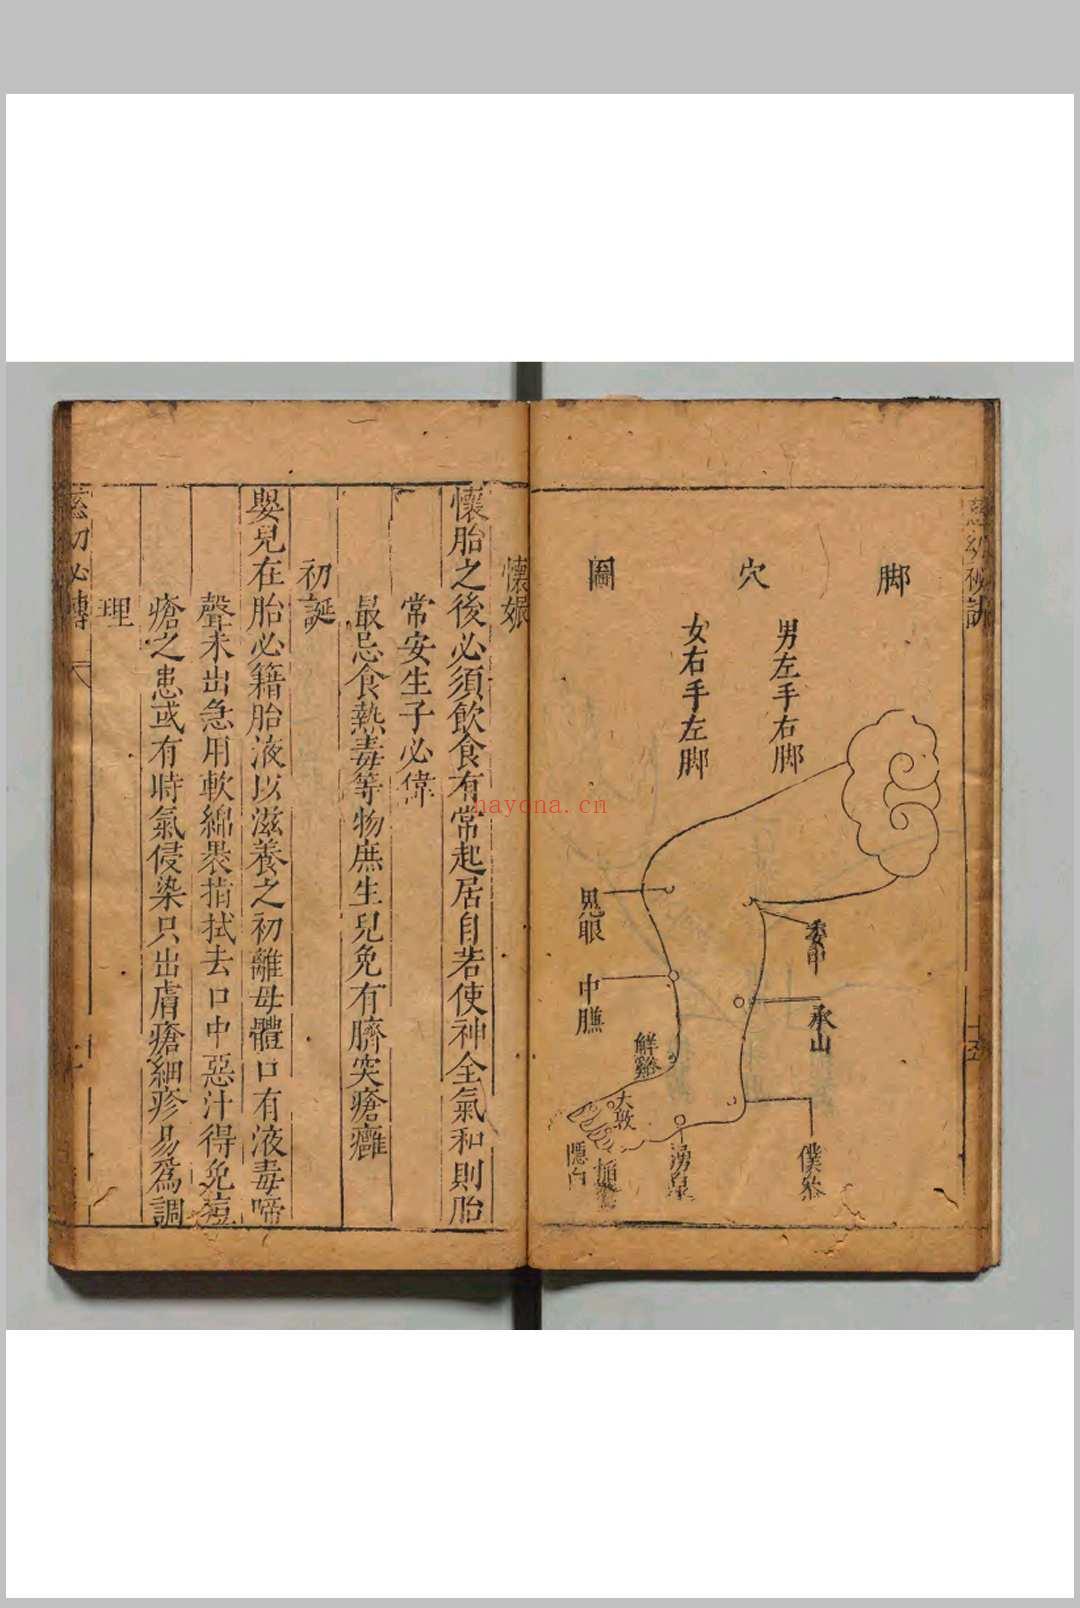 脚穴圖
男左手右脚
女右手左脚
鬼眼
中臁
鮮谿
大敦
隱白
湧泉
委中
承山
僕參
懷娠
懷胎之後必須飲食有常起居自若使神全氣和則胎
常安生子必偉
最忌食熱毒等物庶生兒免有臍突瘡癰
初誕
嬰兒在胎必籍胎液以滋養之初離母體口有液毒啼
聲未出急用軟綿裹指拭去口中惡汁得免痘
瘡之患或有時氣侵染只出膚瘡細疹易為調
理
nayona.cn